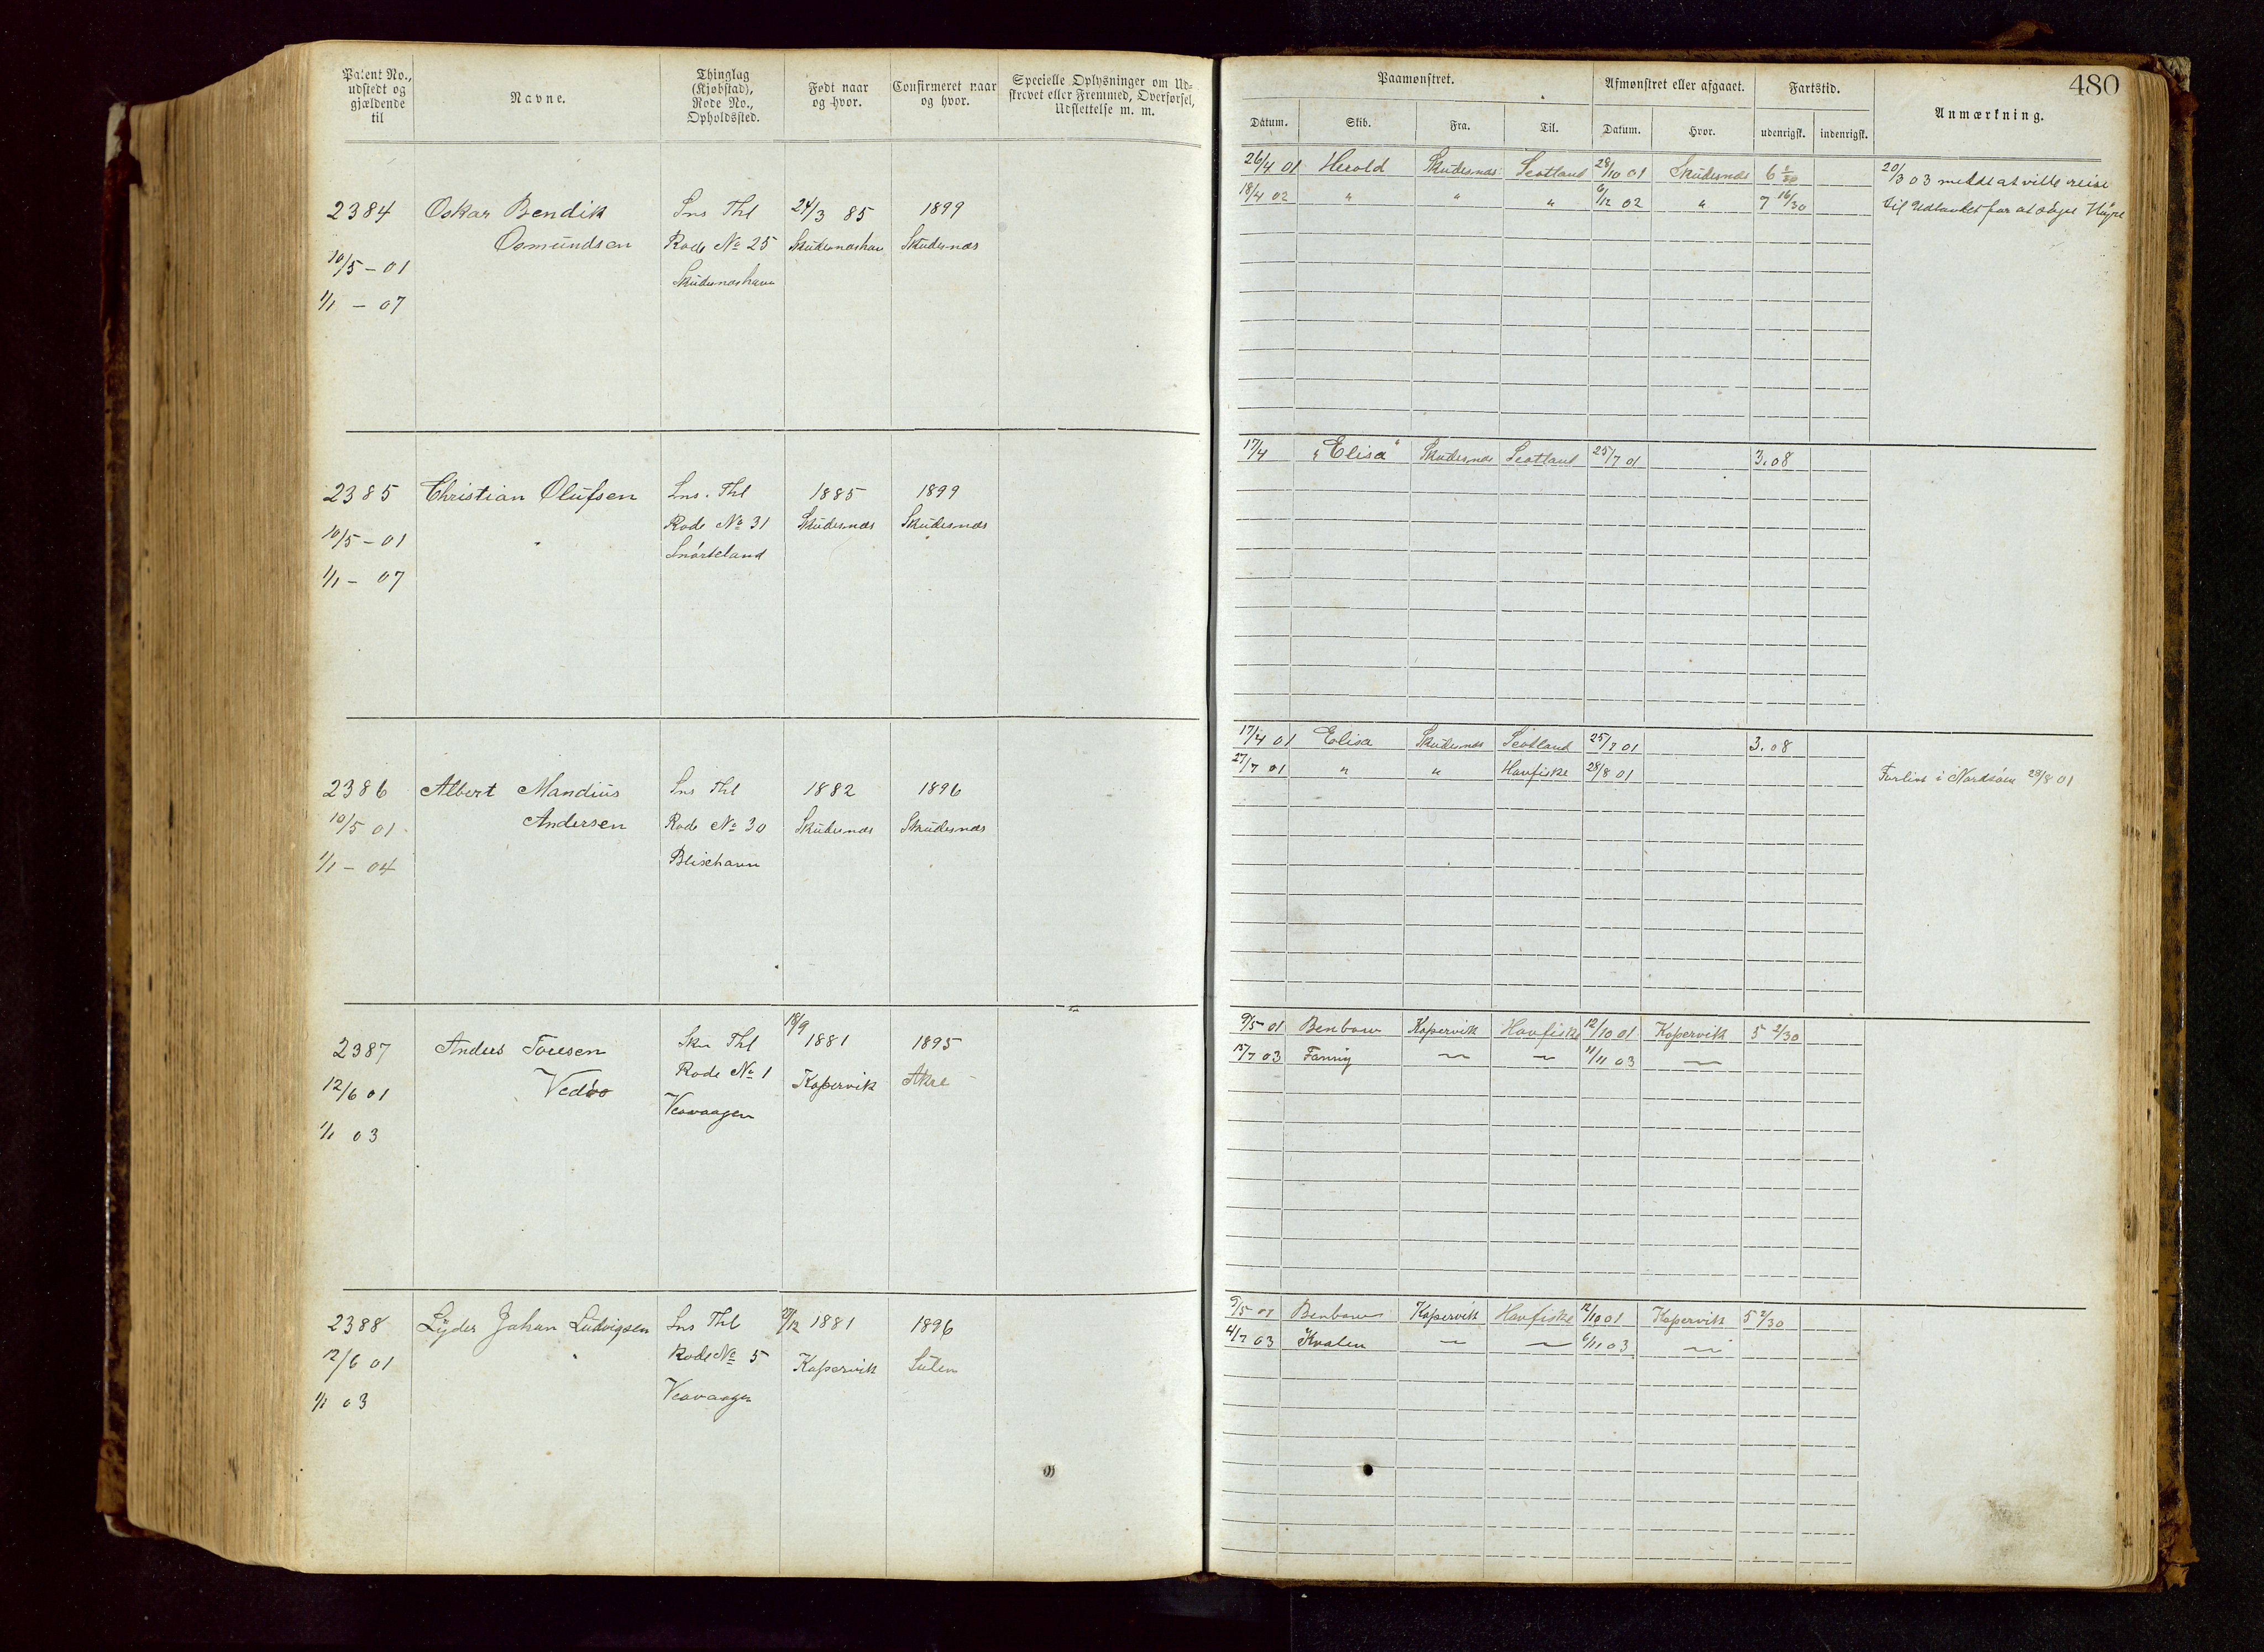 Patent No.,
udstedt og
gjældende
til
Navne.
Thinglag
(Kjøbstad),
Rode No.,
Opholdssted.
Født naar
og hvor.
Confirmeret naar
og hvor.
Specielle Oplysninger om Ud-
skrevet eller Fremmed, Overførsel,
Udslettelse m. m.
2384
10/5 - 01
1/1 - 07
Oskar Bendik
Osmundsen
Sns Thl
Rode No 25
Skudesneshavn
24/3 85
Skudesneshavn
1899
Skudesnes
2385
10/5 - 01
1/1 - 07
Christian Olufsen
Sns. Thl
Rode No 31
Snørteland
1885
Skudesnes
1899
Skudesnes
2386
10/5 01
1/1 - 04
Albert Mandius
Andersen
Sns Thl
Rode No 30
Blixehavn
1882
Skudesnes
1896
Skudesnes
2387
12/6 01
1/1 03
Anders Toresen
Vedøo
Skn Thl
Rode No 1
Veavaagen
18/9
1881
Kopervik
1895
Akre
2388
12/6 01
1/1 03
Lyder Johan Ludvigsen
Sns Thl
Rode No 5
Veavaagen
1881
Kopervik
1896
480
Paamønstret.
Afmønstret eller afgaaet.
Fartstid.
Anmærkning.
Datum.
Skib.
Fra.
Til.
Datum.
Hvor.
udenrigsk.
indenrigsk.
26/4 01 Herold Skudesnes Scotland 28/10 01 Skudesnes 6
18/4 02 " " " 6/12 02 " 7 16/30
20/3 03 meldt at ville reise
til Udlandet for at søge Hyre
17/4 "Elisa" Skudesnes Scotland 25/7 01 3.08
17/4 01 Elisa Skudesnes Scotland 25/7 01 3.08
27/7 01 " " Havfiske 28/8 01
Forlist i Nordsøen 28/8 01
9/5 01 Benbow Kopervik Havfiske 12/10 01 Kopervik 5 2/30
15/7 03 Fanny — — 11/11 03 —
9/5 01 Benbow Kopervik Havfiske 12/10 01 Kopervik 5 2/30
4/7 03 Kvalen — — 6/11 03 —